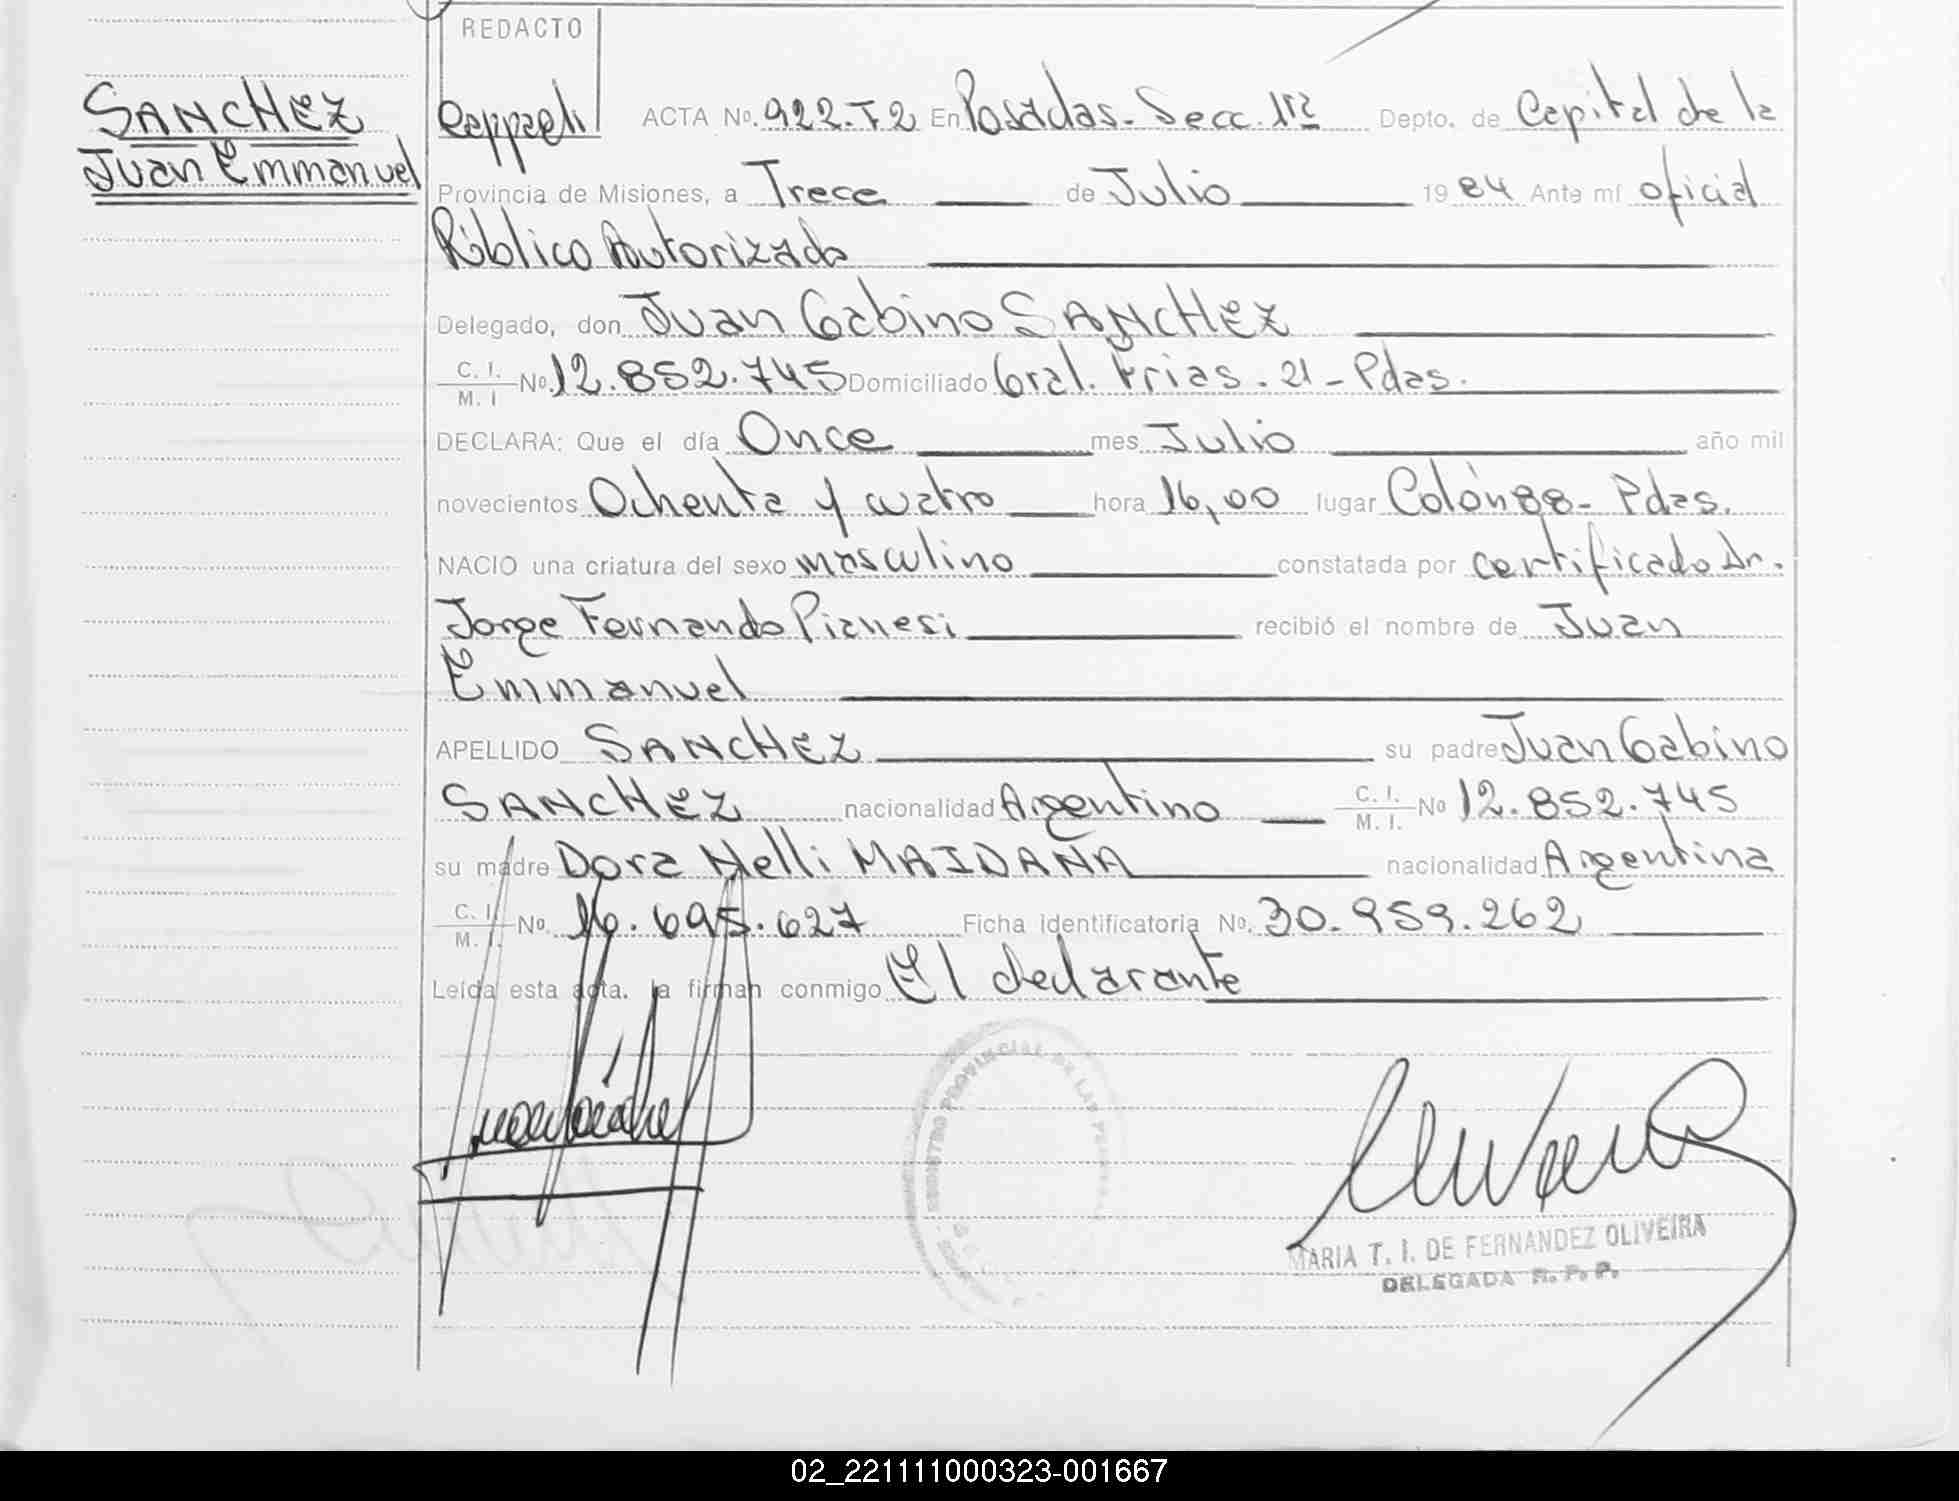 REDACTO
SANCHEZ
Juan Emmanuel
ACTA No. 922.T2 En Posadas. Secc. 1ra Depto. de Capital de la
Provincia de Misiones, a Trece de Julio 1984 Ante mí oficial
Público Autorizado
Delegado, don Juan Gabino SANCHEZ
C. I. M. I No. 12.852.745 Domiciliado Gral. Frias. 21 - Pdas.
DECLARA: Que el día Once mes Julio año mil
novecientos Ochenta y cuatro hora 16,00 lugar Colón 88 - Pdas.
NACIO una criatura del sexo masculino constatada por certificado Dr.
Jorge Fernando Pianesi recibió el nombre de Juan
Emmanuel
APELLIDO SANCHEZ su padre Juan Gabino
SANCHEZ nacionalidad Argentino C. I. M. I. No 12.852.745
su madre Dora Nelli MAIDANA nacionalidad Argentina
C. I. M. I. No. 16.695.627 Ficha identificatoria No. 30.959.262
Leída esta acta. la firman conmigo El declarante
REGISTRO PROVINCIAL DE LAS
MARIA T. I. DE FERNANDEZ OLIVEIRA
DELEGADA R. P. P.
02_221111000323-001667